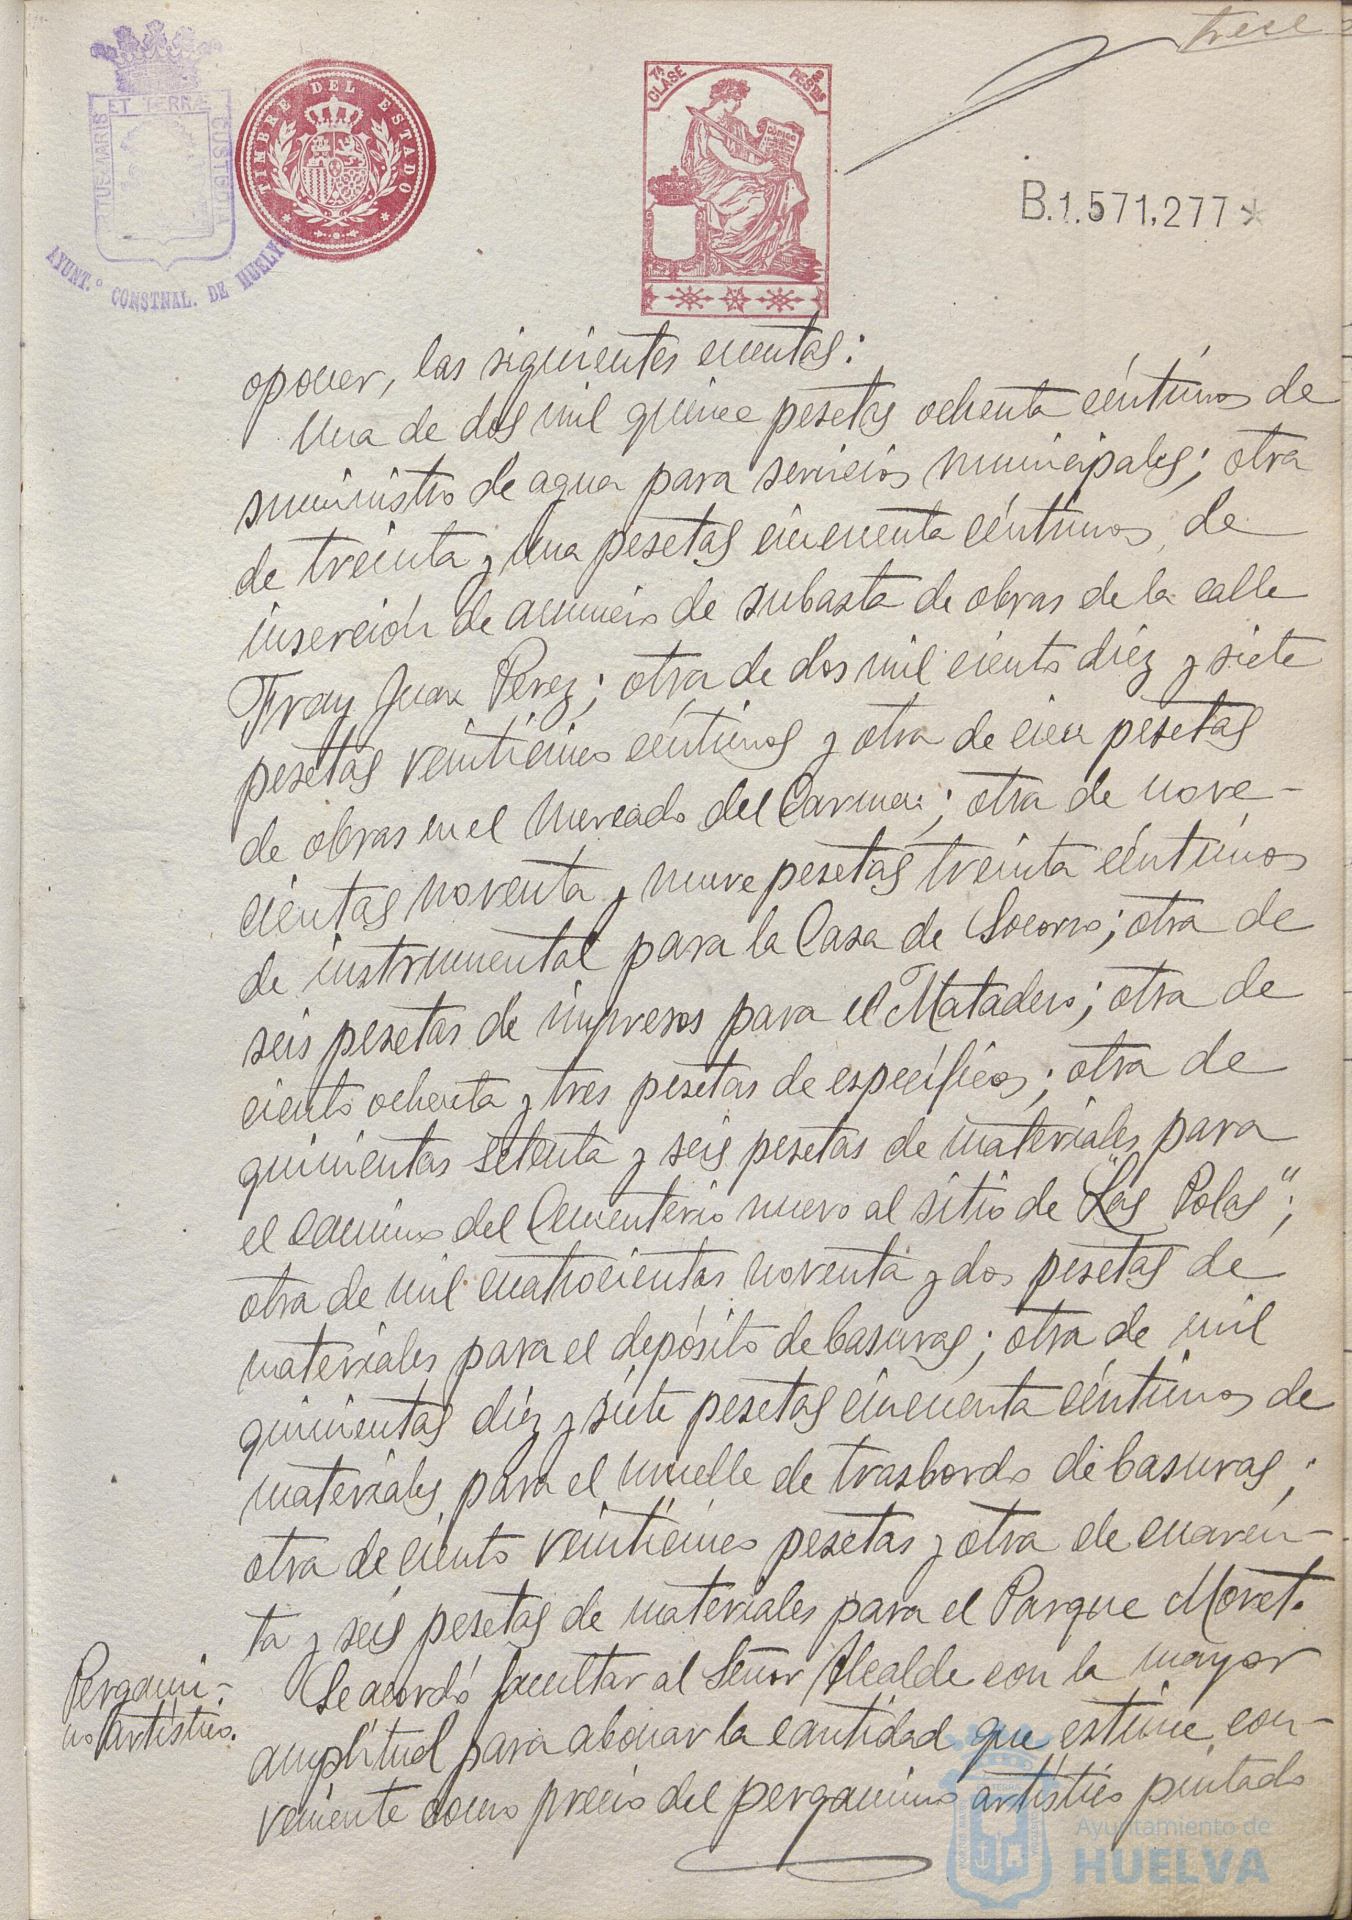 trece
ET TERRÆ
PORTUS MARIS
CUSTODIA
AYUNT.º CONSTNAL. DE HUELVA
TIMBRE DEL ESTADO
7ª CLASE
2 PESTAS
CODIGO
B.1.571.277*
oponer, las siguientes cuentas:
Una de dos mil quince pesetas ochenta céntimos de
suministro de agua para servicios municipales; otra
de treinta y una pesetas cincuenta céntimos, de
inserción de anuncio de subasta de obras de la calle
Fray Juan Perez; otra de dos mil ciento diéz y siete
pesetas veinticinco céntimos y otra de cien pesetas
de obras en el Mercado del Carmen; otra de nove-
cientas noventa y nueve pesetas treinta céntimos
de instrumental para la Casa de Socorro; otra de
seis pesetas de impresos para el Matadero; otra de
ciento ochenta y tres pesetas de específicos; otra de
quinientas setenta y seis pesetas de materiales para
el camino del Cementerio nuevo al sitio de "Las Polas";
otra de mil cuatrocientas noventa y dos pesetas de
materiales para el depósito de basuras; otra de mil
quinientas diéz y siete pesetas cincuenta céntimos de
materiales para el muelle de trasbordo de basuras;
otra de ciento veinticinco pesetas y otra de cuaren-
ta y seis pesetas de materiales para el Parque Moret.
Pergami-
no Artístico.
Se acordó facultar al Señor Alcalde con la mayor
amplitud para abonar la cantidad que estime con-
veniente como precio del pergamino artístico pintado
Ayuntamiento de
HUELVA